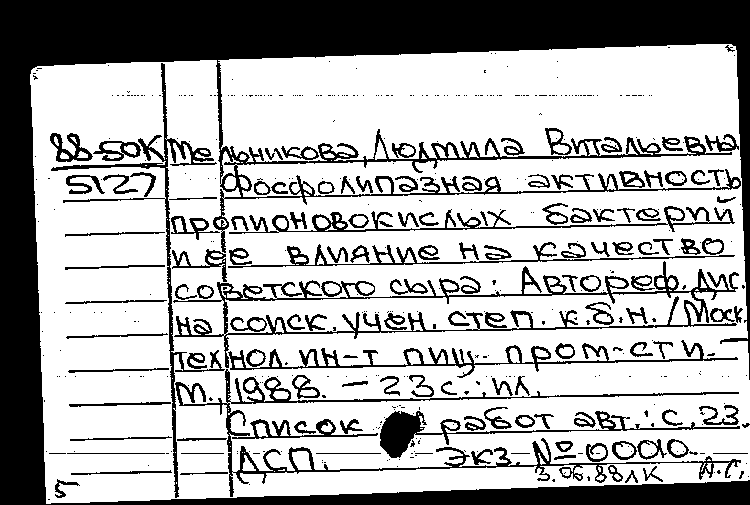 88-50К Мельникова, Людмила Витальевна
5127 Фосфолипазная активность
пропионовокислых бактерий
и ее влияние на качество
советского сыра: Автореф. дис.
на соиск. учен. степ. к.б.н. / Моск.
технол. ин-т пищ. пром-сти. –
М., 1988. – 23 с.: ил.
Список работ авт.: с. 23.
ДСП. Экз. № 00010.
3.06.88 ЛК А.С.
5